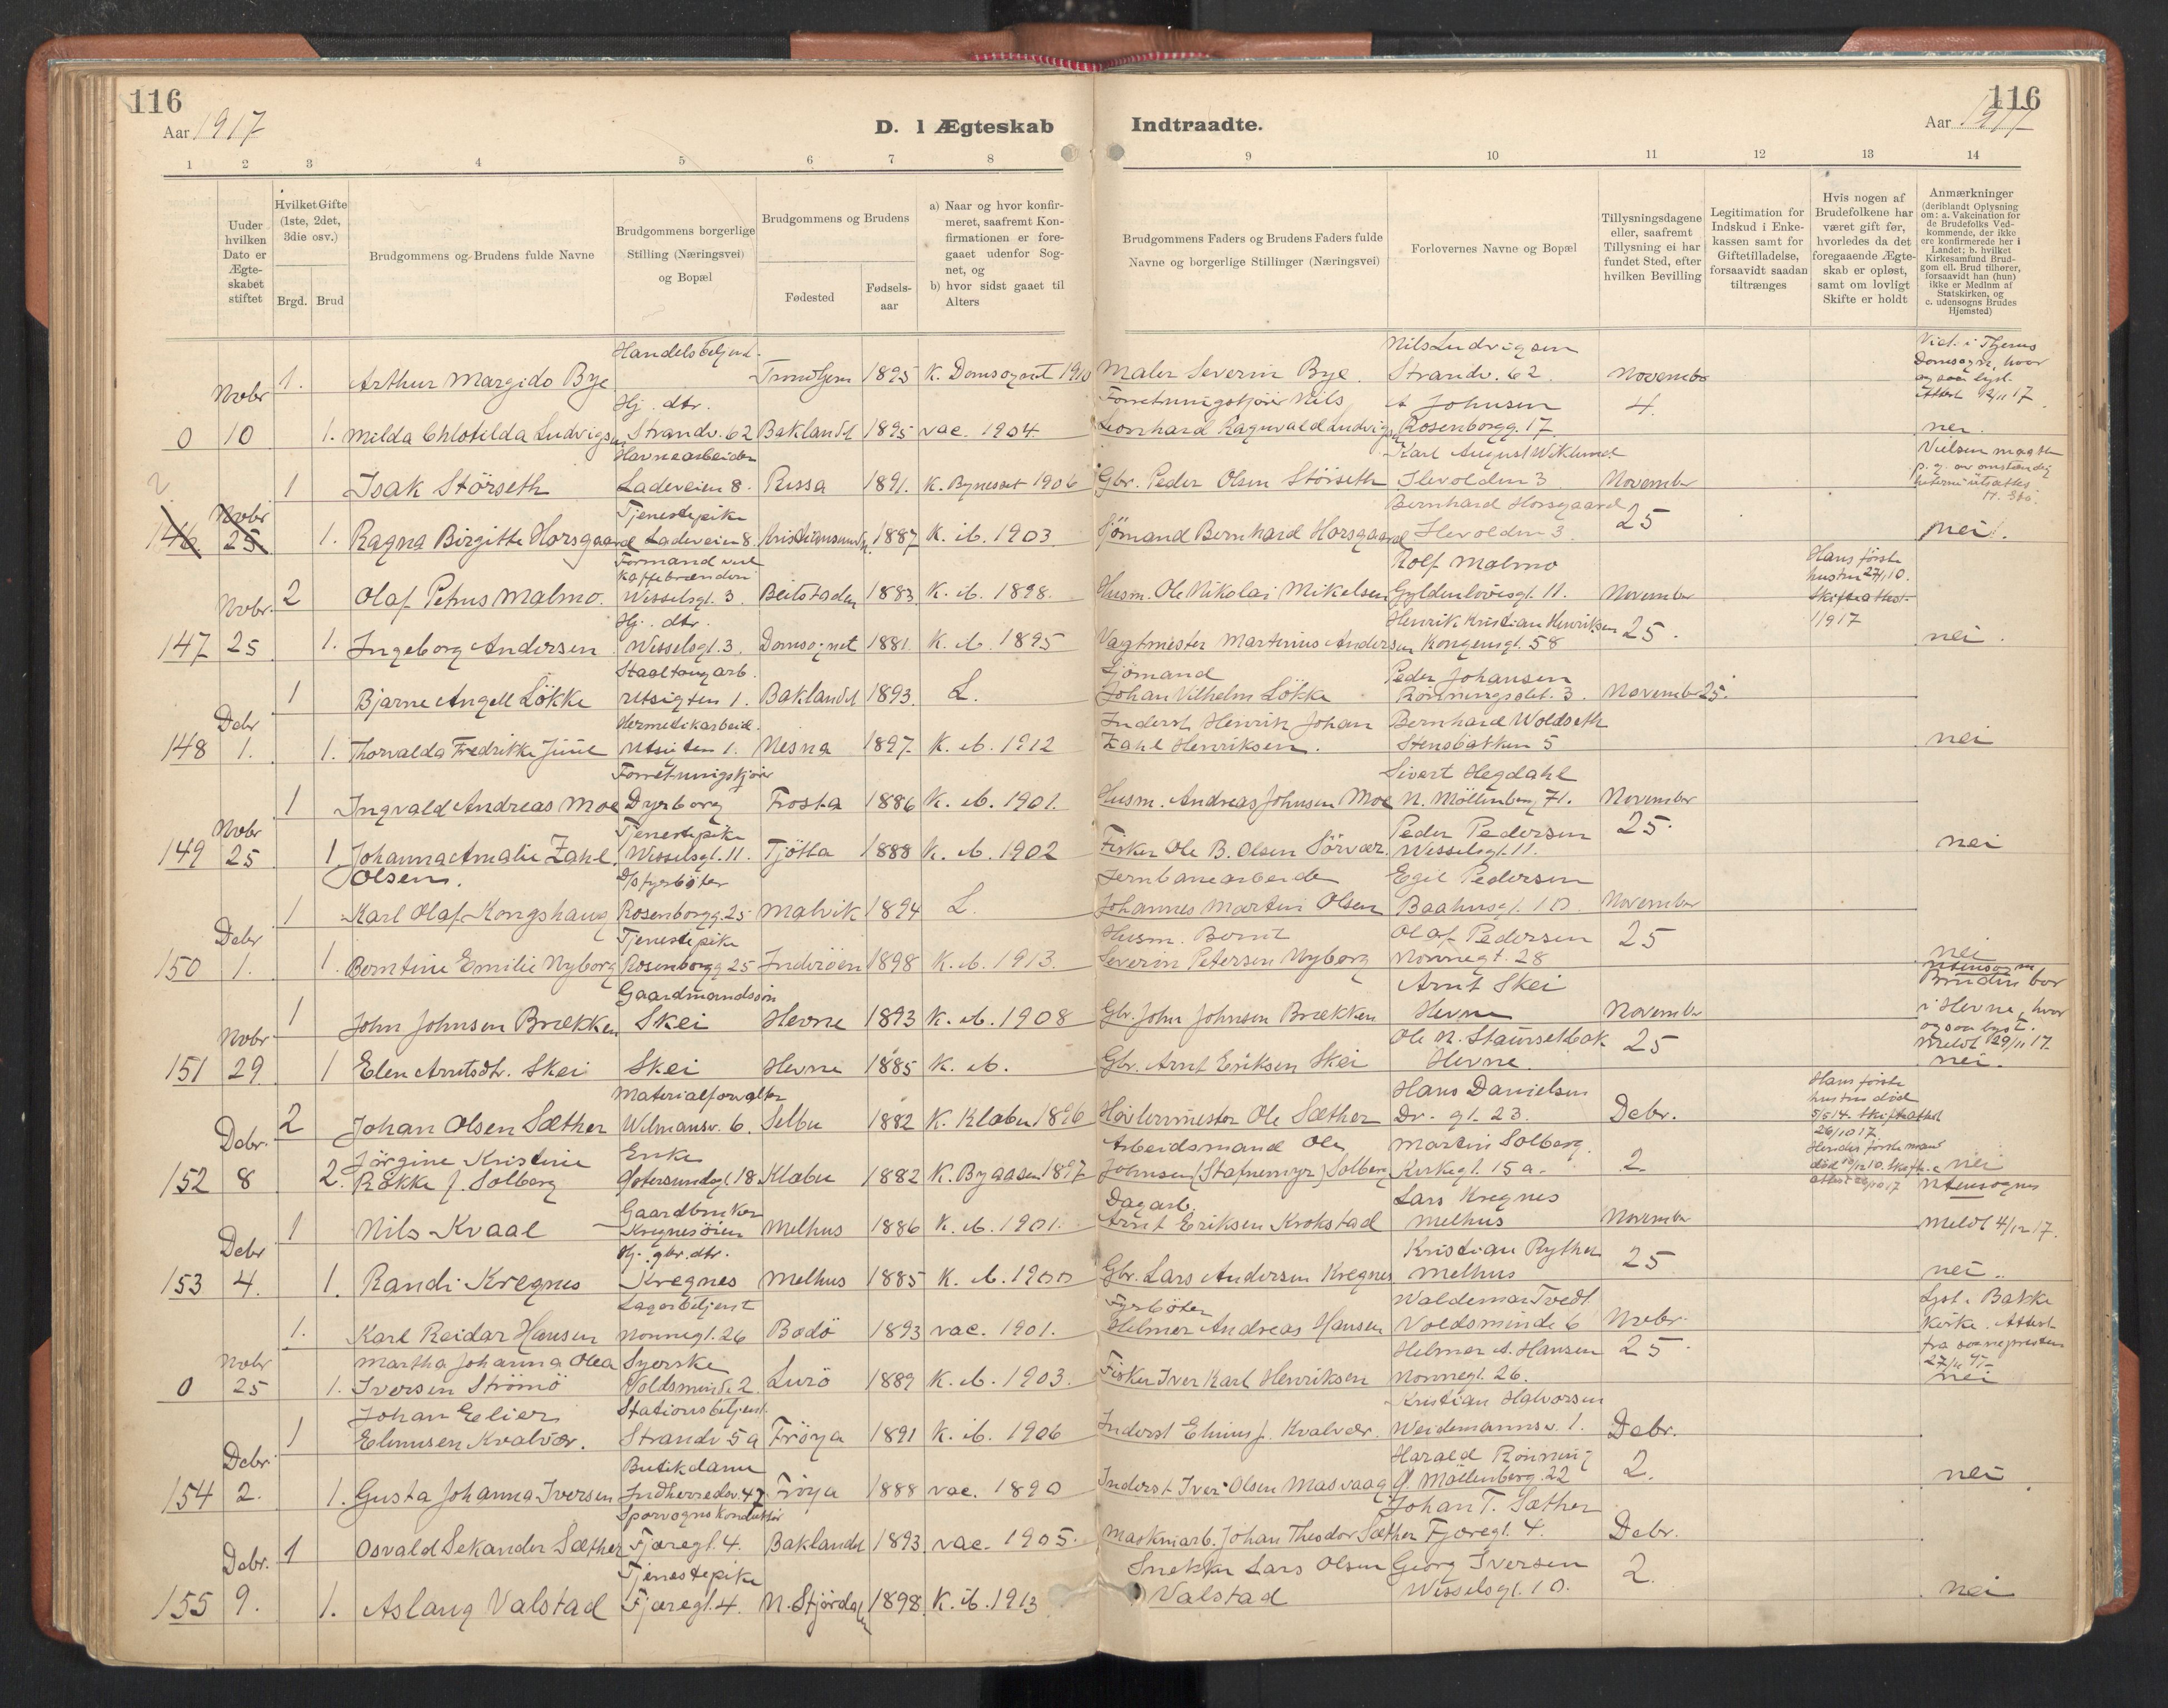 116
Aar 1917
D. 1 Ægteskab
Indtraadte.
116
Aar 1917
1 2 3 4 5 6 7 8 9 10 11 12 13 14
Uuder hvilken Dato er Ægte-skabet stiftet
Hvilket Gifte (1ste, 2det, 3die osv.)
Brgd. Brud
Brudgommens og Brudens fulde Navne
Brudgommens borgerlige Stilling (Næringsvei) og Bopæl
Brudgommens og Brudens
Fødested
Fødsels-aar
a) Naar og hvor konfir-meret, saafremt Kon-firmationen er fore-gaaet udenfor Sog-net, og
b) hvor sidst gaaet til Alters
Brudgommens Faders og Brudens Faders fulde Navne og borgerlige Stillinger (Næringsvei)
Forlovernes Navne og Bopæl
Tillysningsdagene eller, saafremt Tillysning ei har fundet Sted, efter hvilken Bevilling
Legitimation for Indskud i Enke-kassen samt for Giftetilladelse, forsaavidt saadan tiltrænges
Hvis nogen af Brudefolkene har været gift før, hvorledes da det foregaaende Ægte-skab er opløst, samt om lovligt Skifte er holdt
Anmærkninger (deriblandt Oplysning om: a. Vakcination for de Brudefolks Ved-kommende, der ikke ere konfirmerede her i Landet; b. hvilket Kirkesamfund Brud-gom ell. Brud tilhører, forsaavidt han (hun) ikke er Medlum af Statskirken, og c. udensogns Brudes Hjemsted)
Handelsbetjent.
Nils Ludvigsen
1. Arthur Margido Bye Trondhjem 1895 K. Domsognet 1910 Maler Severin Bye. Strandv. 62. November
Nobr
Hj. dtr. Forretningskjører Nils A Johnsen 4.
0 10 1. Milda Chlotilda Ludvigsen Strandv. 62 Baklandet 1895 vac. 1904. Leonhard Ragnvald Ludvigsen Rosenborgg. 17 nei.
Havnearbeider Karl August Wiklund
1 Isak Störseth Ladeveien 8. Rissa 1891. K. Bynesset 1906 Gbr. Peder Olsen Störseth Ilevolden 3 November
Nobr Tjenestepike Bernhard Horsgaard 25
146 25 1. Ragna Birgitte Horsgaard Ladeveien 8. Kristiansund N. 1887 K. ib. 1903 Sjömand Bernhard Horsgaard Ilevolden 3. nei.
Formand ved kaffebrænderi Rolf Malmo Hans første hustru 27/1 10.
2 Olaf Petrus Malmo. Wesselsgt. 3 Beitstaden 1883 K. ib. 1898. Husm. Ole Nikolai Mikelsen Gyldenlövesgt. 11. November Skifteattest
Nobr. Hj. dtr. Henrik Kristian Henriksen 25. 1/9 17
147 25 1. Ingeborg Andersen Wesselsgt. 3. Domsognet 1881 K. ib. 1895 Vagtmester Martinius Andersen Kongensgt. 58 nei.
Staaltougarb. Sjömand Peder Johansen
1 Bjarne Angell Lökke Utsigten 1. Baklandet 1893. L. Johan Vilhelm Lökke Rönningsslet. 3. November 25.
Debr Hermetikarbeid. Inderst Henrik Johan Bernhard Woldseth
148 1. 1. Thorvalda Fredrikke Juul Utsigten 1. Nesna 1897 K. ib. 1912 Zahl Henriksen. Stensbakken 5 nei
Forretningskjører Sivert Hegdahl
1 Ingvald Andreas Moe Dyrborg Frosta 1886 K. ib. 1901. Husm. Andreas Johnsen Moe N. Möllenberg 71. November
Nobr Tjenestepike Peder Pedersen 25.
149 25 1 Johanna Amalie Zahl Wesselsgt. 11. Tjötta 1888 K. ib. 1902 Fisker Ole B. Olsen Sörvær. Wesselsgt. 11. nei
Olsen. D/s fyrböter Jernbanearbeider Egil Pedersen
1 Karl Olaf Kongshaug Rosenborgg. 25 Malvik 1894 L. Johannes Martin Olsen Baahusgt. 10. November
Debr Tjenestepike Husm. Bernt Olaf Pedersen 25
150 1. 1. Berntine Emilie Nyborg Rosenborgg 25 Inderöen 1898 K. ib. 1913. Severin Petersen Nyborg Nonnegt. 28 nei
Gaardmandssön Arnt Skei Bruden bor
1 John Johnsen Brækken Skei Hevne 1893 K. ib. 1908 Gbr. John Johnsen Brækken Hevne November i Hevne, hvor
Nobr Ole N. Staursetbak 25 ogsaa lyst. Meldt 29/11 17.
151 29 1 Elen Arntsdtr. Skei Skei Hevne 1885 K. ib. Gbr. Arnt Eriksen Skei Hevne. nei.
Materialforvalter Hans Danielsen Hans første hustru död
2 Johan Olsen Sæther Wilmansv. 6. Selbu 1882 K. Klæbu 1896 Høvlermester Ole Sæther Dr. gt. 23. Debr. 5/5 14. Skifteattest 26/10 17
Debr. Jörgine Kristine Enke Arbeidsmand Ole Martin Solberg. Hendes første mand
152 8 2. Rökke f. Solberg 18 Klæbu 1882 K. Byaasen 1897 Johnsen (Stafnemyr) Solberg Kirkegt. 15 a. 2 nei
Gaardbruker Dagarb. Lars Kregnes Utensogns
1 Nils Kvaal Kregnesöien Melhus 1886 K. ib. 1901. Arnt Eriksen Krokstad Melhus November Meldt 4/12 17.
Debr Hj. gbr. dtr. Kristian Ryther 25
153 4. 1. Randi Kregnes Kregnes Melhus 1885 K. ib. 1900 Gbr. Lars Andersen Kregnes Melhus nei.
Lagerbetjent Fyrböter Waldemar Tvedt Lyst i Bakke
1. Karl Reidar Hansen Nonnegt. 26 Bodö 1893 vac. 1901. Helmer Andreas Hansen Voldsminde 6 Nobr. kirke. Attest
Nobr Martha Johanna Olea Syerske Helmer A. Hansen 25. fra sognepresten
0 25 1. Iversen Strömö Voldsminde 2. Lurö 1889 K. ib. 1903. Fisker Iver Karl Henriksen Nonnegt. 26. nei
Johan Elier Stationsbetjent. Kristian Halvorsen
1 Elmusen Kvalvær. Strandv 5a Fröya 1891 K. ib. 1906 Inderst Kvalvær. Weidemannsv. 1. Debr.
Debr Butikdame Harald Rönning 2.
154 2. 1. Gusta Johanna Iversen Indherredsv. 47 Fröya 1888 vac. 1890 Inderst Iver Olsen Masvaag N. Möllenberg. 22 nei
Sporvognskonduktör Johan T. Sæther
1 Osvald Sekander Sæther Fjæregt. 4. Baklandet 1893 vac. 1905. Maskinarb. Johan Theodor Sæther Fjæregt. 4. Debr.
Debr. Tjenestepike Snekker Lars Olsen Georg Iversen 2.
155 9. 1. Aslaug Valstad Fjæregt. 4. N. Stjördalen 1898. K. ib. 1913 Valstad Wesselsgt. 10. nei